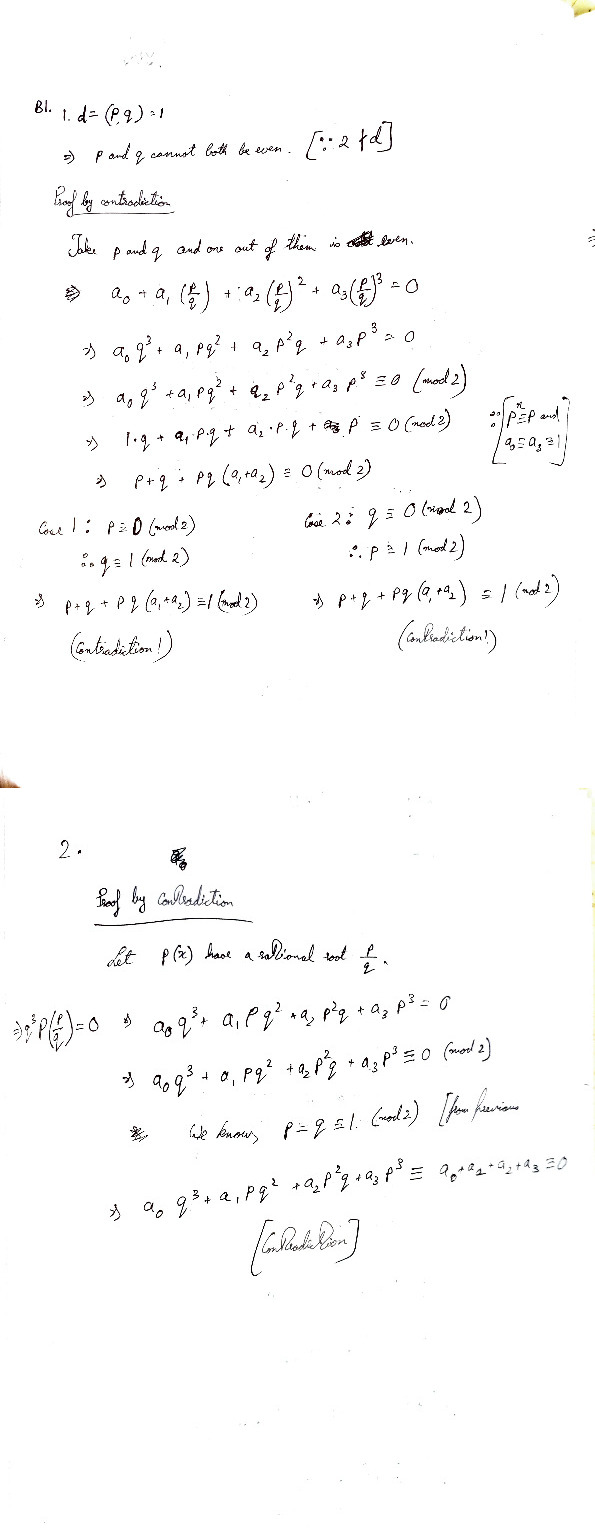 B1. 1. d = (p,q) = 1
⇒ p and q cannot both be even. [∵ 2 ∤ d]
Proof by contradiction
Take p and q and one out of them is even.
⇒ a₀ + a₁ (p/q) + a₂ (p/q)² + a₃ (p/q)³ = 0
⇒ a₀ q³ + a₁ pq² + a₂ p²q + a₃ p³ = 0
⇒ a₀ q³ + a₁ pq² + a₂ p²q + a₃ p³ ≡ 0 (mod 2)
⇒ 1·q + a₁·p·q + a₂·p·q + p ≡ 0 (mod 2) ∵ [pⁿ ≡ p and
a₀ ≡ a₃ ≡ 1]
⇒ p + q + pq (a₁ + a₂) ≡ 0 (mod 2)
Case 1: p ≡ 0 (mod 2)
∴ q ≡ 1 (mod 2)
⇒ p + q + pq (a₁ + a₂) ≡ 1 (mod 2)
(Contradiction!)
Case 2: q ≡ 0 (mod 2)
∴ p ≡ 1 (mod 2)
⇒ p + q + pq (a₁ + a₂) ≡ 1 (mod 2)
(Contradiction!)
2.
Proof by Contradiction
Let P(x) have a rational root p/q.
⇒ q³P(p/q) = 0 ⇒ a₀ q³ + a₁ pq² + a₂ p²q + a₃ p³ = 0
⇒ a₀ q³ + a₁ pq² + a₂ p²q + a₃ p³ ≡ 0 (mod 2)
We know, p ≡ q ≡ 1 (mod 2) [from previous
⇒ a₀ q³ + a₁ pq² + a₂ p²q + a₃ p³ ≡ a₀ + a₁ + a₂ + a₃ ≡ 0
[Contradiction]